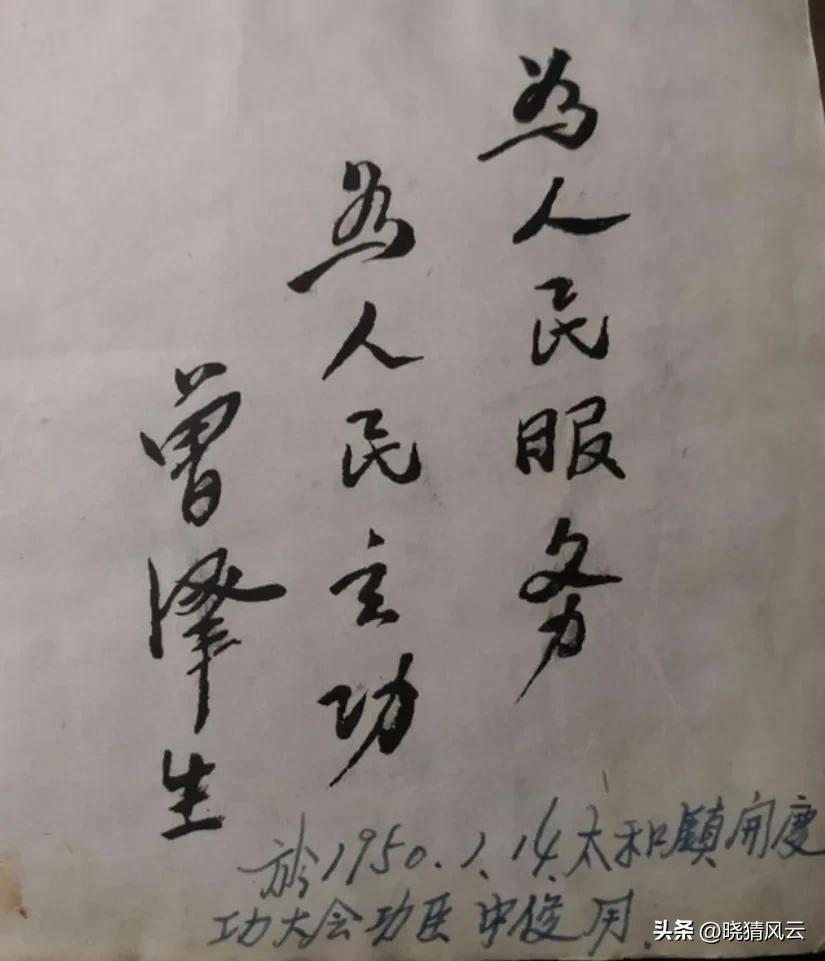 為人民服务
為人民立功
曾泽生
於1950.1.14.太和鎮開慶
功大会功臣申俊用.
头条 @晓猜风云